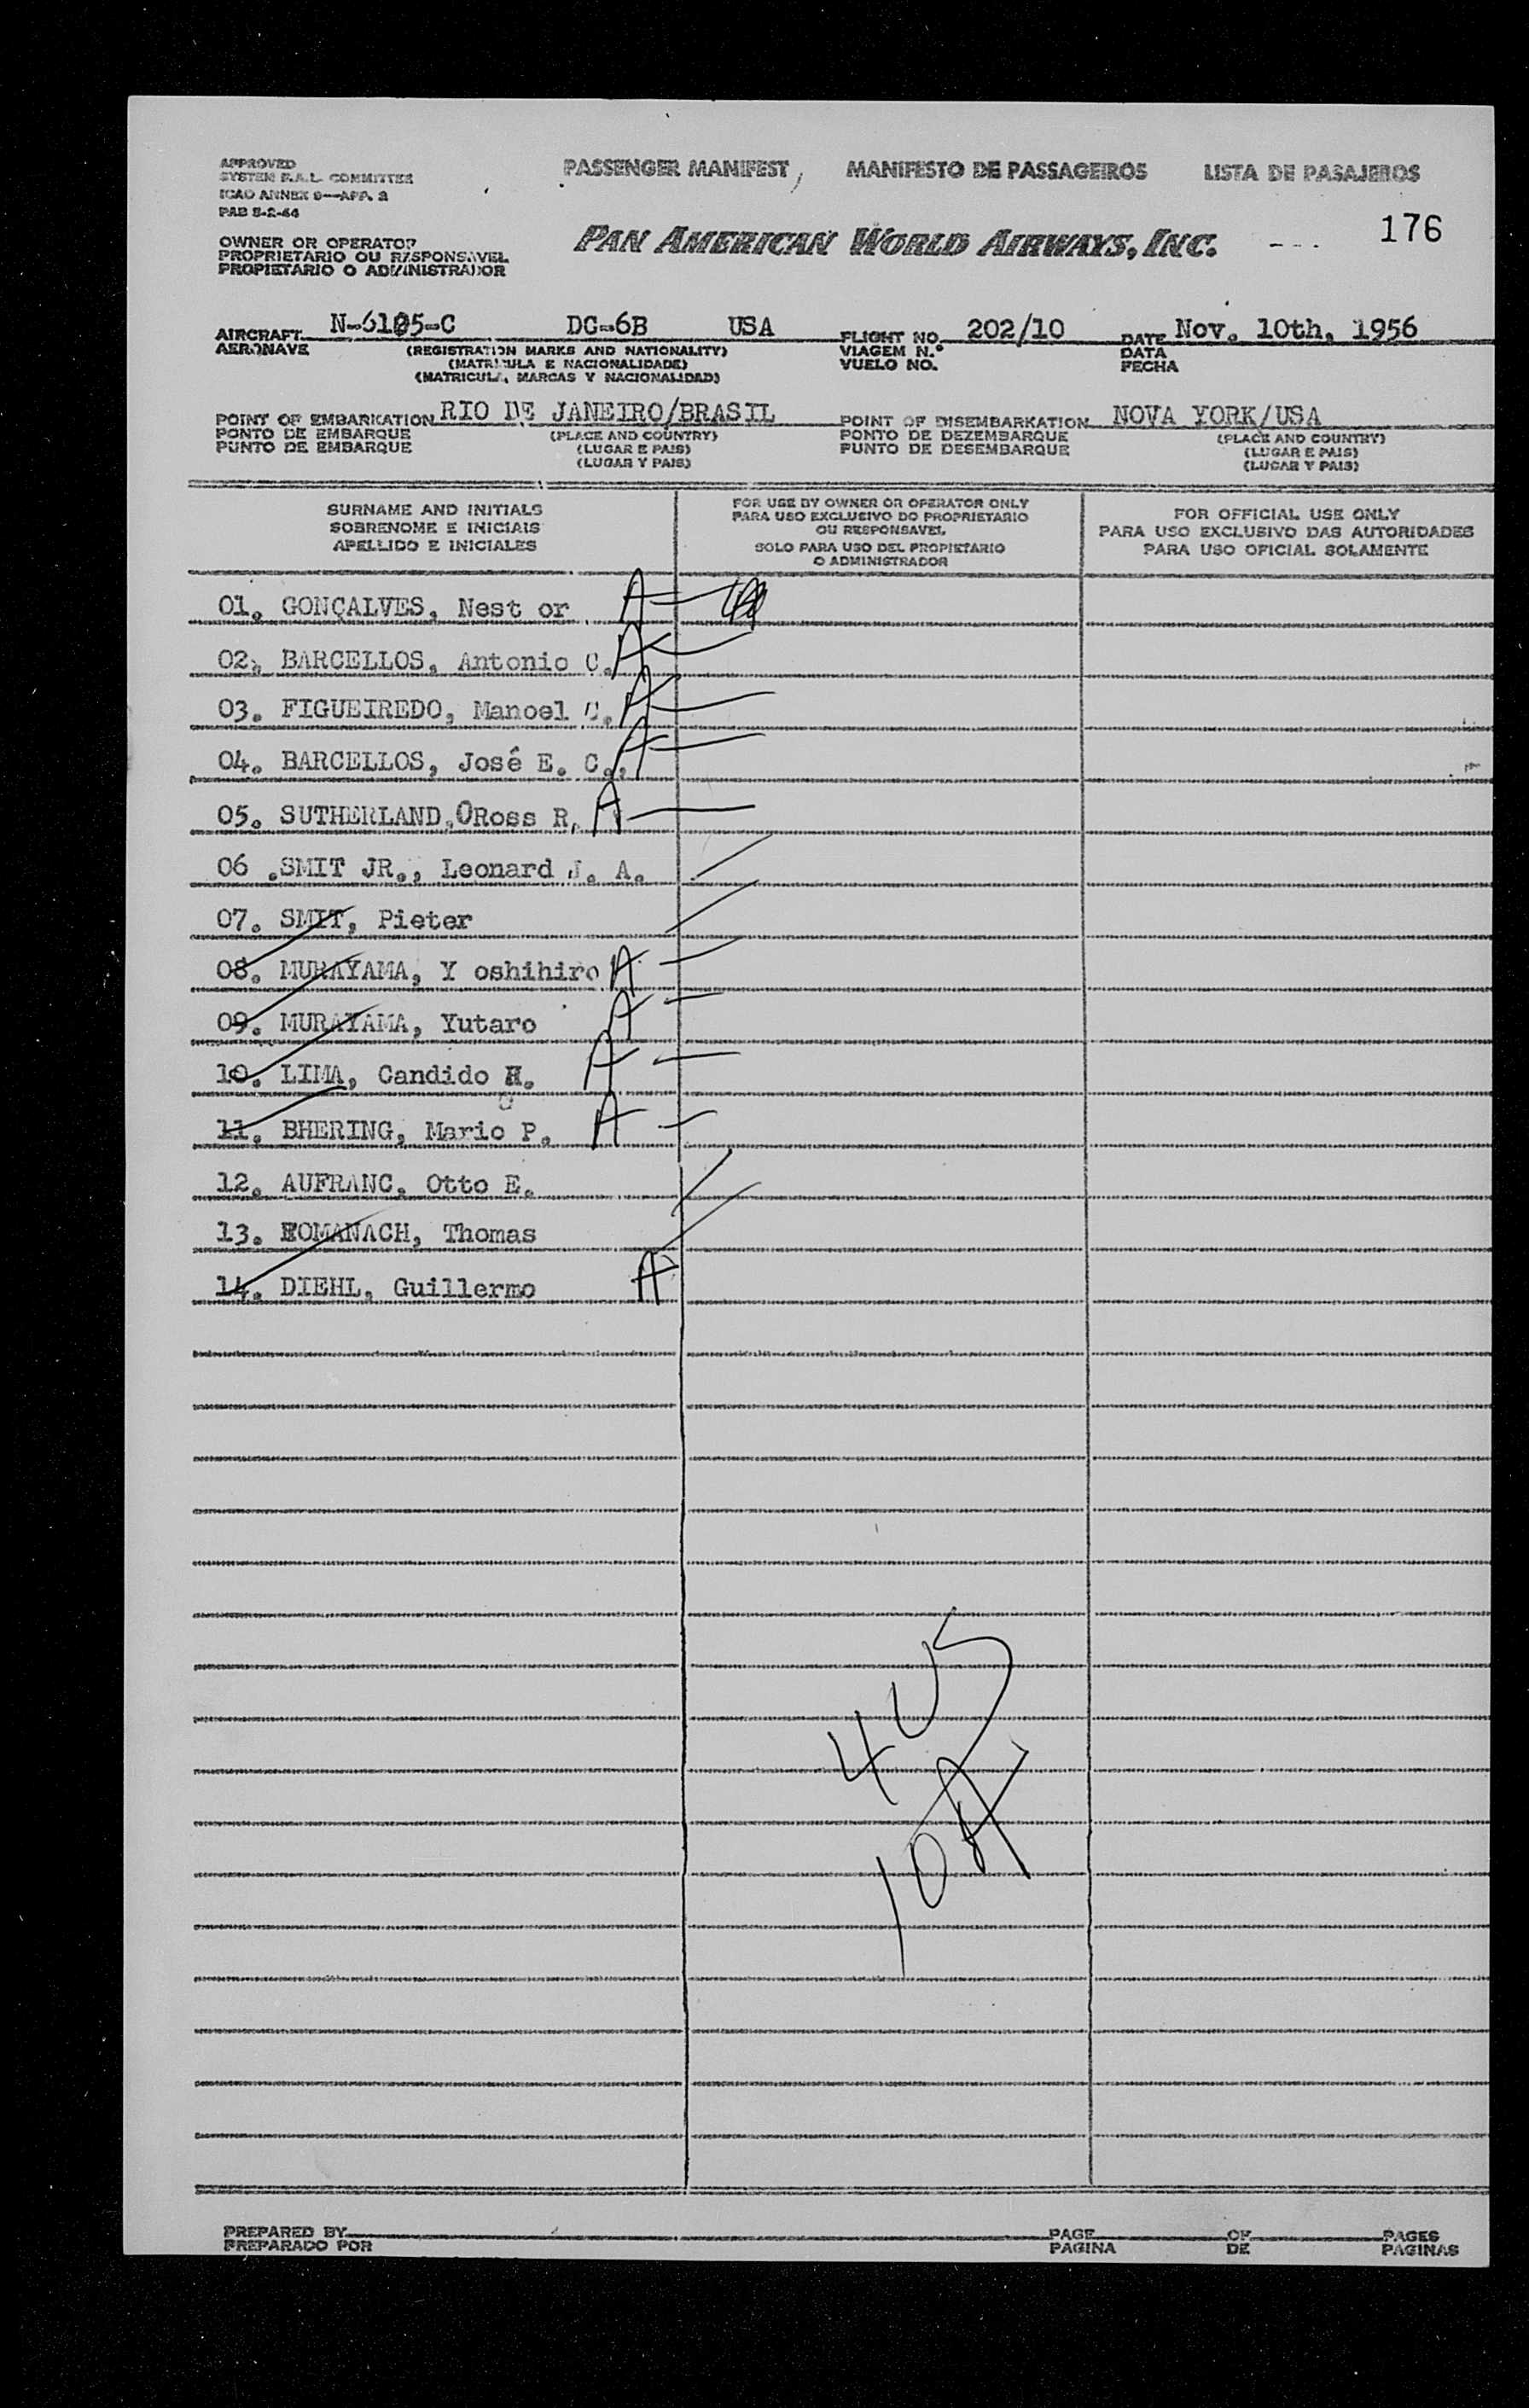 APPROVED
SYSTEM F.A.L. COMMITTEE
ICAO ANNEX 9—APP. 3
PAB 5-2-44
PASSENGER MANIFEST, MANIFESTO DE PASSAGEIROS LISTA DE PASAJEROS
176
OWNER OR OPERATOR
PROPRIETARIO OU RESPONSAVEL
PROPIETARIO O ADMINISTRADOR
PAN AMERICAN WORLD AIRWAYS, INC. - - -
AIRCRAFT N-6105-C DC-6B USA FLIGHT NO. 202/10 DATE Nov. 10th, 1956
AERONAVE (REGISTRATION MARKS AND NATIONALITY) VIAGEM N.° DATA
(MATRICULA E NACIONALIDADE) VUELO NO. FECHA
(MATRICULA, MARCAS Y NACIONALIDAD)
POINT OF EMBARKATION RIO DE JANEIRO/BRASIL POINT OF DISEMBARKATION NOVA YORK/USA
PONTO DE EMBARQUE (PLACE AND COUNTRY) PONTO DE DEZEMBARQUE (PLACE AND COUNTRY)
PUNTO DE EMBARQUE (LUGAR E PAIS) PUNTO DE DESEMBARQUE (LUGAR E PAIS)
(LUGAR Y PAIS) (LUGAR Y PAIS)
SURNAME AND INITIALS
SOBRENOME E INICIAIS
APELLIDO E INICIALES
FOR USE BY OWNER OR OPERATOR ONLY
PARA USO EXCLUSIVO DO PROPRIETARIO
OU RESPONSAVEL
SOLO PARA USO DEL PROPIETARIO
O ADMINISTRADOR
FOR OFFICIAL USE ONLY
PARA USO EXCLUSIVO DAS AUTORIDADES
PARA USO OFICIAL SOLAMENTE
01. GONÇALVES, Nest or A
02. BARCELLOS, Antonio C. A
03. FIGUEIREDO, Manoel C. A
04. BARCELLOS, José E. C., A
05. SUTHERLAND,ORoss R. A
06 .SMIT JR., Leonard J. A.
07. SMIT, Pieter
08. MURAYAMA, Y oshihiro A
09. MURAYAMA, Yutaro A
10. LIMA, Candido H. A
11. BHERING, Mario P. A
12. AUFRANC, Otto E.
13. ROMANACH, Thomas
14. DIEHL, Guillermo A
4 US
10 A
PREPARED BY PAGE OF PAGES
PREPARADO POR PAGINA DE PAGINAS